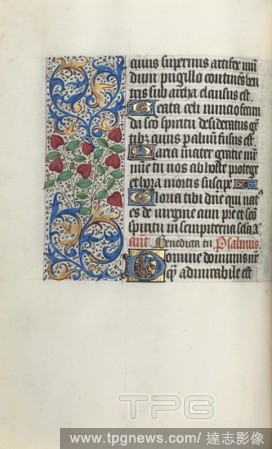 quius supernus artifex mũ
dum pugillo continẽs ven
tris sub archa clausus est.
Beata celi nuncio fecun
da sc̃o spiritu desideratus gẽ
tibꝫ cuius per aluũ fusus est.
Maria mater gratie mr̃
mie tu nos ab hoste protege
et hora mortis suscipe
Gloria tibi dñe qui nat
es de virgine cum pr̃e et sc̃o
spiritu in sempiterna secla a.
ant. Benedicta tu. Psalmus.
Domine dominus nr̃
qꝫ admirabile est
TPG
www.tpgnews.com/ 達志影像